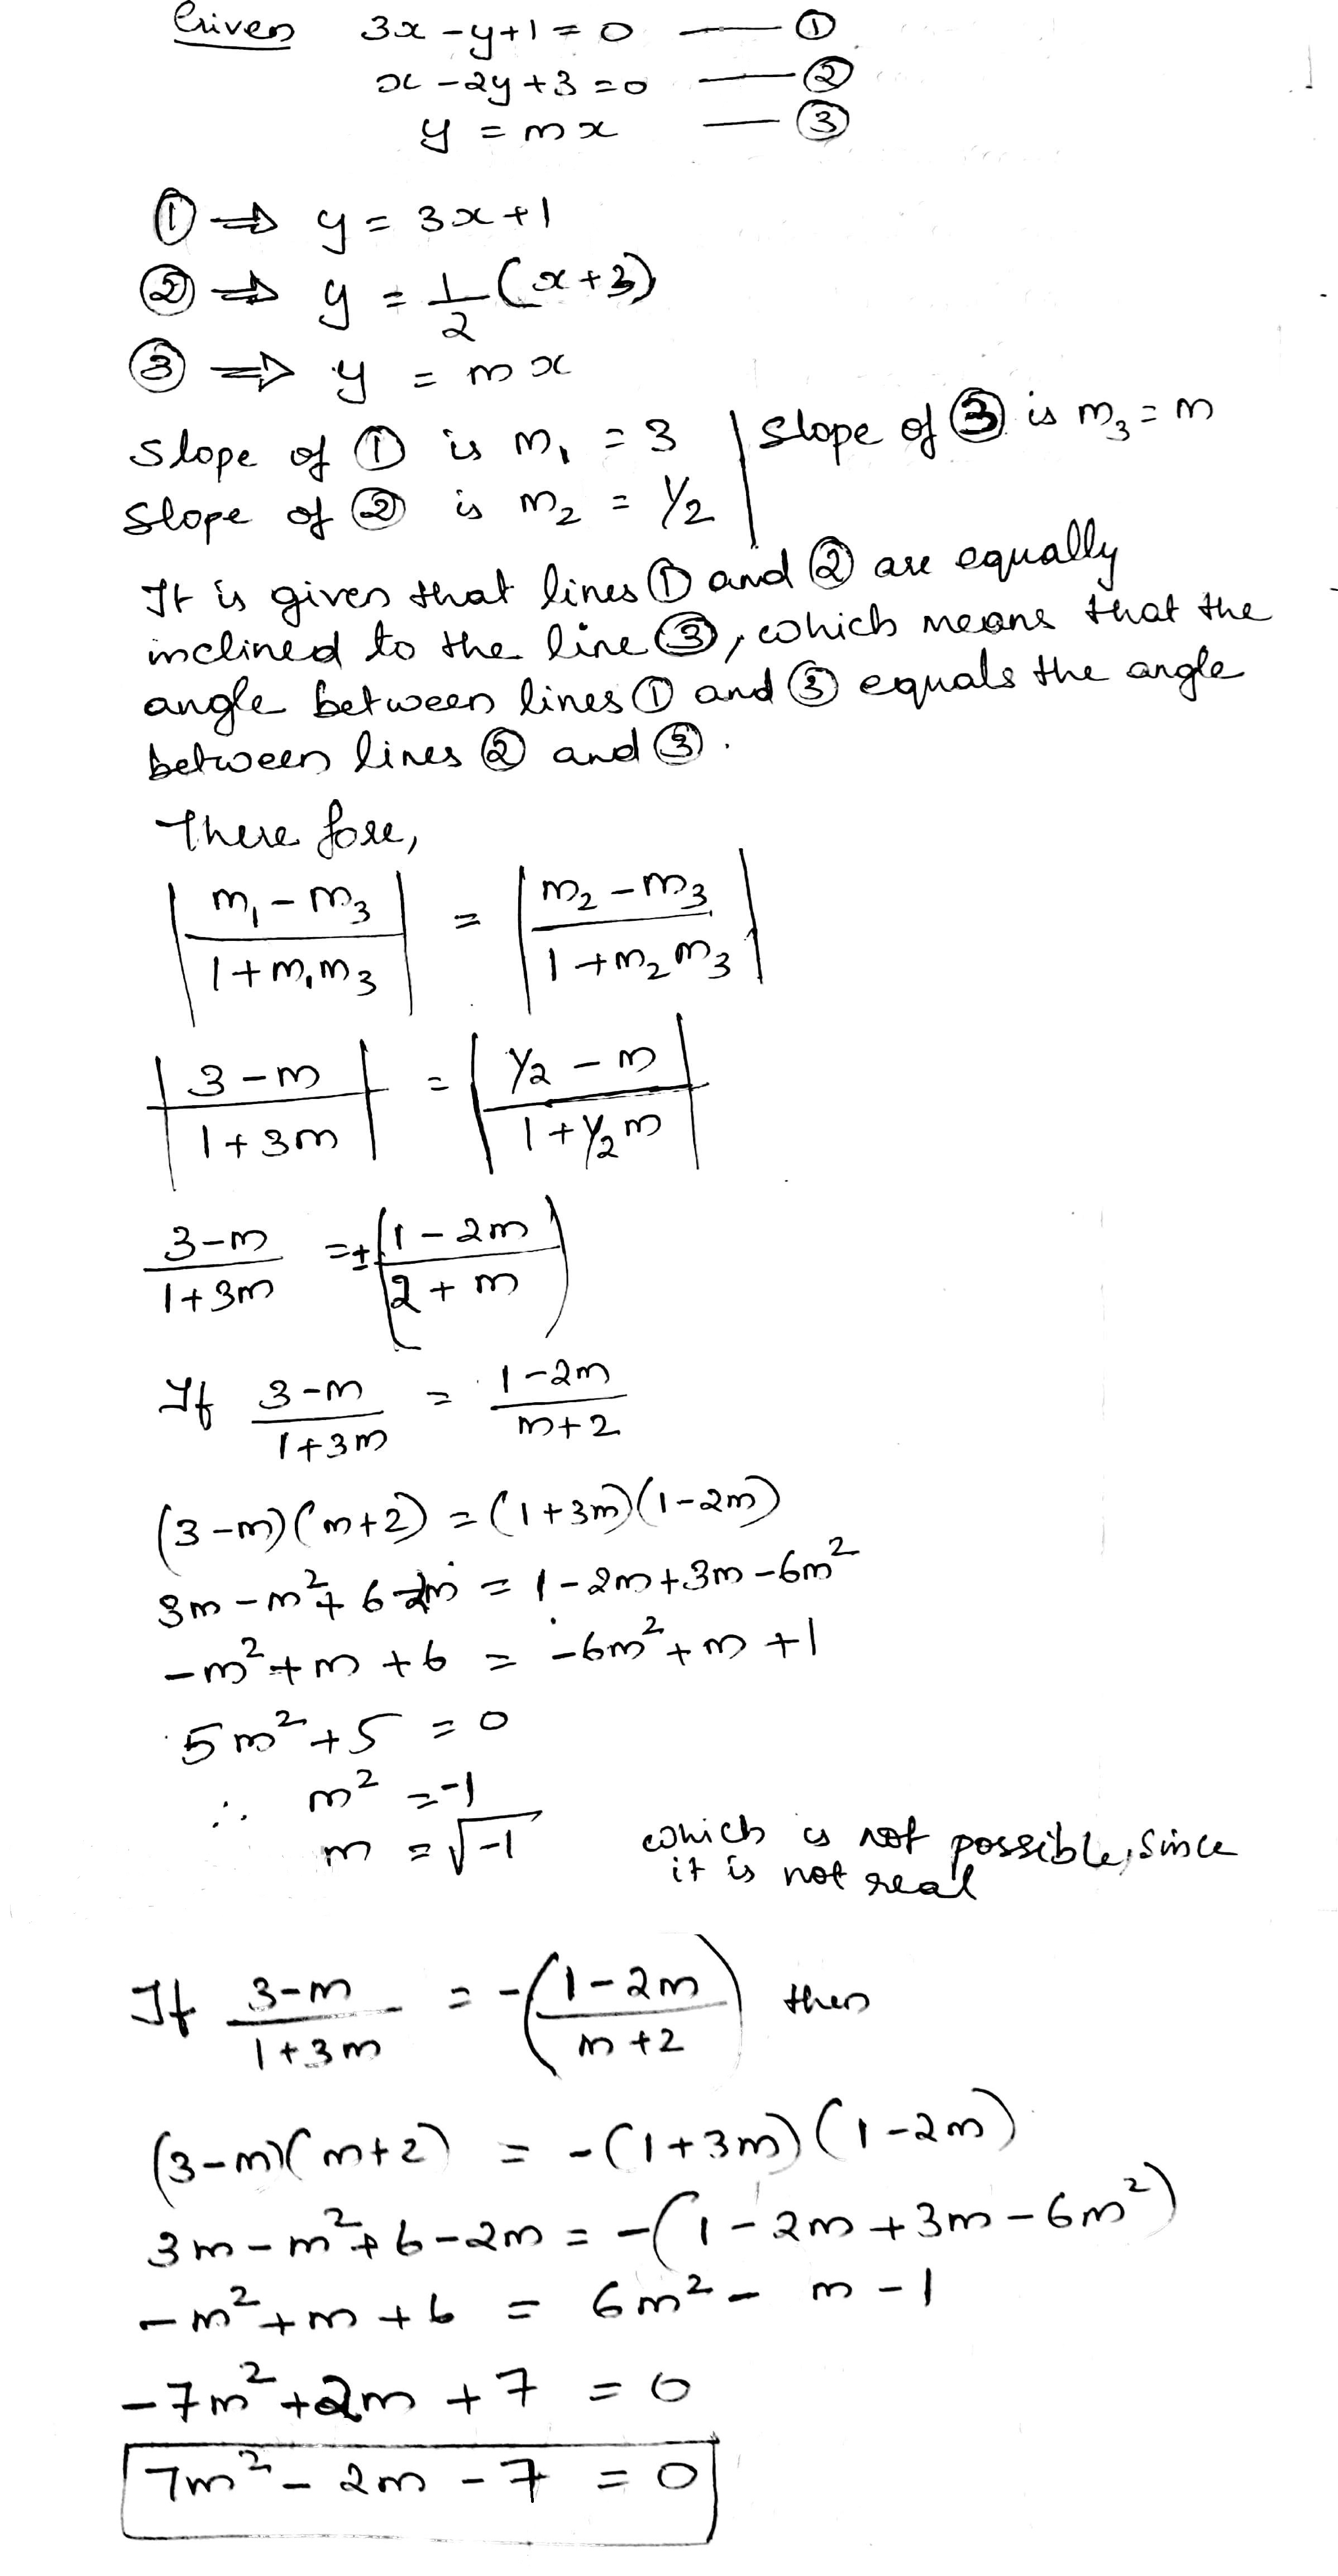 Given 3x - y + 1 = 0 — ①
x - 2y + 3 = 0 — ②
y = mx — ③
① ⇒ y = 3x + 1
② ⇒ y = 1/2 (x + 3)
③ ⇒ y = mx
Slope of ① is m₁ = 3 | Slope of ③ is m₃ = m
Slope of ② is m₂ = 1/2
It is given that lines ① and ② are equally
inclined to the line ③, which means that the
angle between lines ① and ③ equals the angle
between lines ② and ③.
There fore,
|(m₁ - m₃)/(1 + m₁m₃)| = |(m₂ - m₃)/(1 + m₂m₃)|
|(3 - m)/(1 + 3m)| = |(1/2 - m)/(1 + 1/2 m)|
(3 - m)/(1 + 3m) = ±((1 - 2m)/(2 + m))
If (3 - m)/(1 + 3m) = (1 - 2m)/(m + 2)
(3 - m)(m + 2) = (1 + 3m)(1 - 2m)
3m - m² + 6 - 2m = 1 - 2m + 3m - 6m²
-m² + m + 6 = -6m² + m + 1
5m² + 5 = 0
∴ m² = -1
m = √-1 which is not possible, since
it is not real
If (3 - m)/(1 + 3m) = -((1 - 2m)/(m + 2)) then
(3 - m)(m + 2) = -(1 + 3m)(1 - 2m)
3m - m² + 6 - 2m = -(1 - 2m + 3m - 6m²)
-m² + m + 6 = 6m² - m - 1
-7m² + 2m + 7 = 0
7m² - 2m - 7 = 0